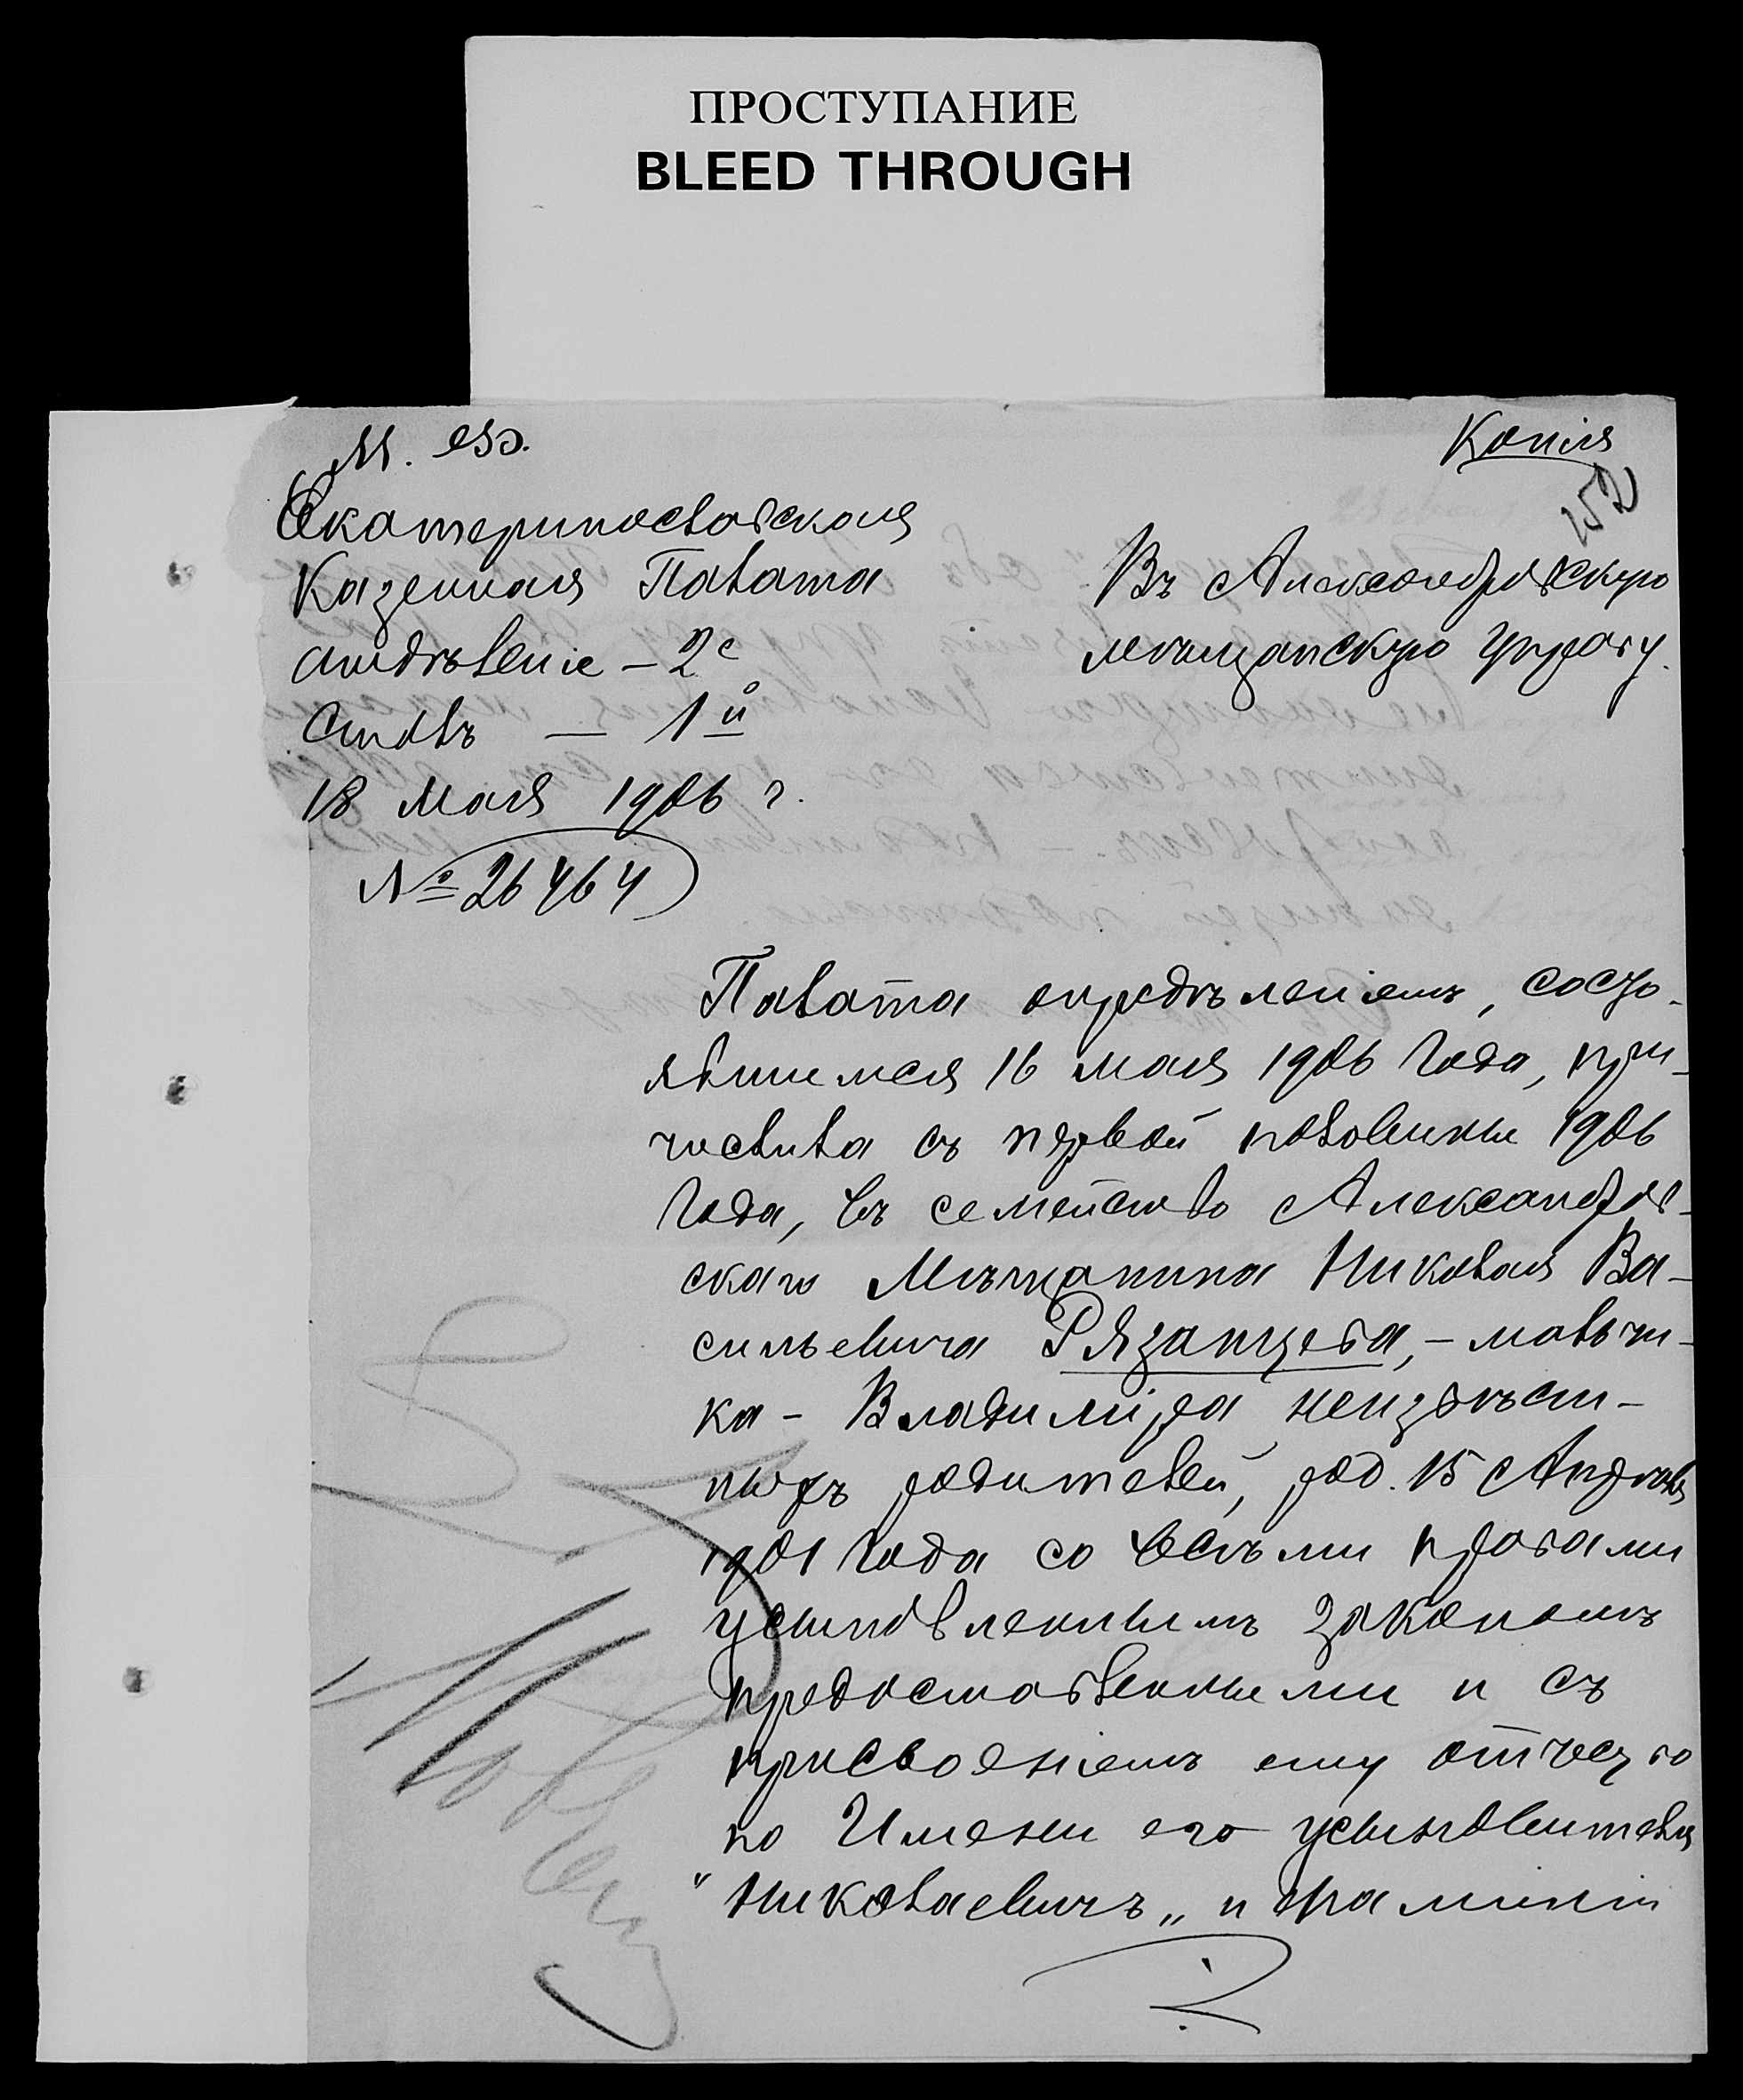 ПРОСТУПАНИЕ
BLEED THROUGH
М. Ф.
Копія
152
Екатеринославская
Казенная Палата
отдѣленіе – 2е
столъ – 1й
18 Мая 1906 г.
№ 26464
Въ Александровскую
мѣщанскую Управу.
Палата опредѣленіемъ, состо-
явшимся 16 мая 1906 года, при-
числила съ первой половины 1906
года, въ семейство Александров-
скаго Мѣщанина Николая Ва-
сильевича Рязанцева, – мальчи-
ка – Владиміра неизвѣст-
ныхъ родителей, род. 15 Апрѣля
1901 года со всѣми правами
усыновленнымъ закономъ
предоставленными и съ
присвоеніемъ ему отчества
по Имени его усыновителя
"Николаевичъ„ и фамиліи